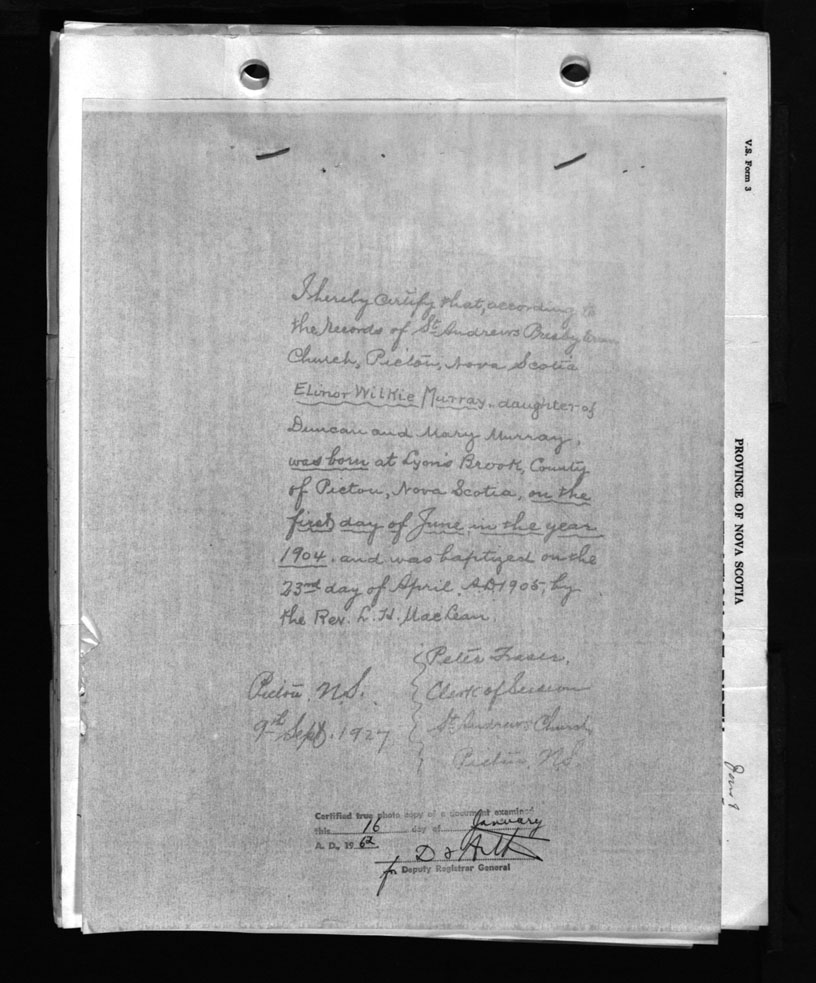 V.S. Form 3
PROVINCE OF NOVA SCOTIA
I hereby certify that, according to
the Records of St. Andrews Presbyterian
Church, Pictou, Nova Scotia
Elinor Wilkie Murray, daughter of
Duncan and Mary Murray,
was born at Lyons Brook, County
of Pictou, Nova Scotia, on the
first day of June in the year
1904, and was baptized on the
23rd day of April, A.D. 1905, by
the Rev. L. H. MacLean.
Pictou, N.S.
9th Sept. 1927
Peter Fraser,
Clerk of Session
St. Andrews Church
Pictou, N.S.
Certified true photo copy of a document examined
this 16 day of January
A. D., 1962
for Deputy Registrar General